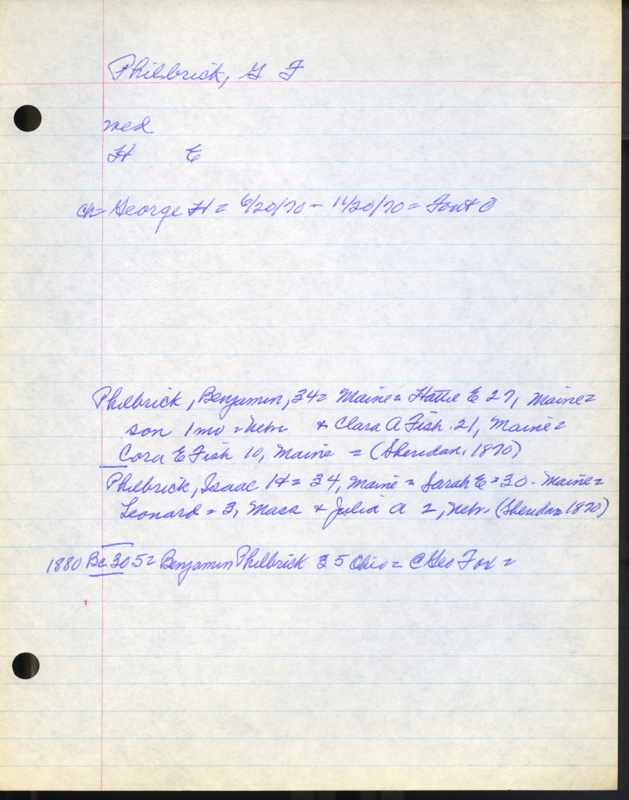 Philbrick, G F
med
H E
ch= George H = 6/20/70 - 11/20/70 =
Philbrick, Benjamin, 34= Maine= Hattie E 27, Maine=
son 1 mo = Nebr & Clara A Fish 21, Maine=
Cora E Fish 10, Maine = (Sheridan, 1870)
Philbrick, Isaac H = 34, Maine = Sarah E = 30 - Maine=
Leonard = 3, Mass & Julia A 2, Nebr. (Sheridan 1870)
1880 Be 305= Benjamin Philbrick 35 Ohio= Geo Fox =